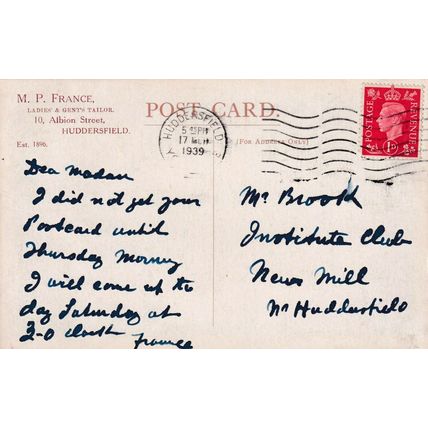 M. P. FRANCE,
LADIES' & GENT'S TAILOR,
10, Albion Street,
HUDDERSFIELD.
Est. 1896.
POST CARD.
(FOR ADDRESS ONLY)
HUDDERSFIELD
5 PM
17
1939
POSTAGE
REVENUE
1D
Dea Madam
I did not get your
Postcard until
Thursday Morning
I will come up to
day Saturday at
2-0 clock
France
Mr Brook
Institute Club
News Mill
Nr Huddersfield